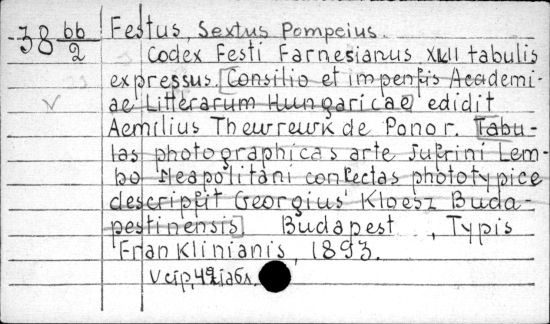 38 bb/2 Festus, Sextus Pompeius.
Codex Festi Farnesianus XLII tabulis
expressus. [Consilio et impensis Academi-
ae Litterarum Hungaricae] edidit
Aemilius Thewrewk de Ponor. [Tabu-
las photographicas arte Juprini Lem-
bo Neapolitani confectas phototypice
descripsit Georgius Kloesz Buda-
pestinensis] Budapest, Typis
Franklinianis, 1893.